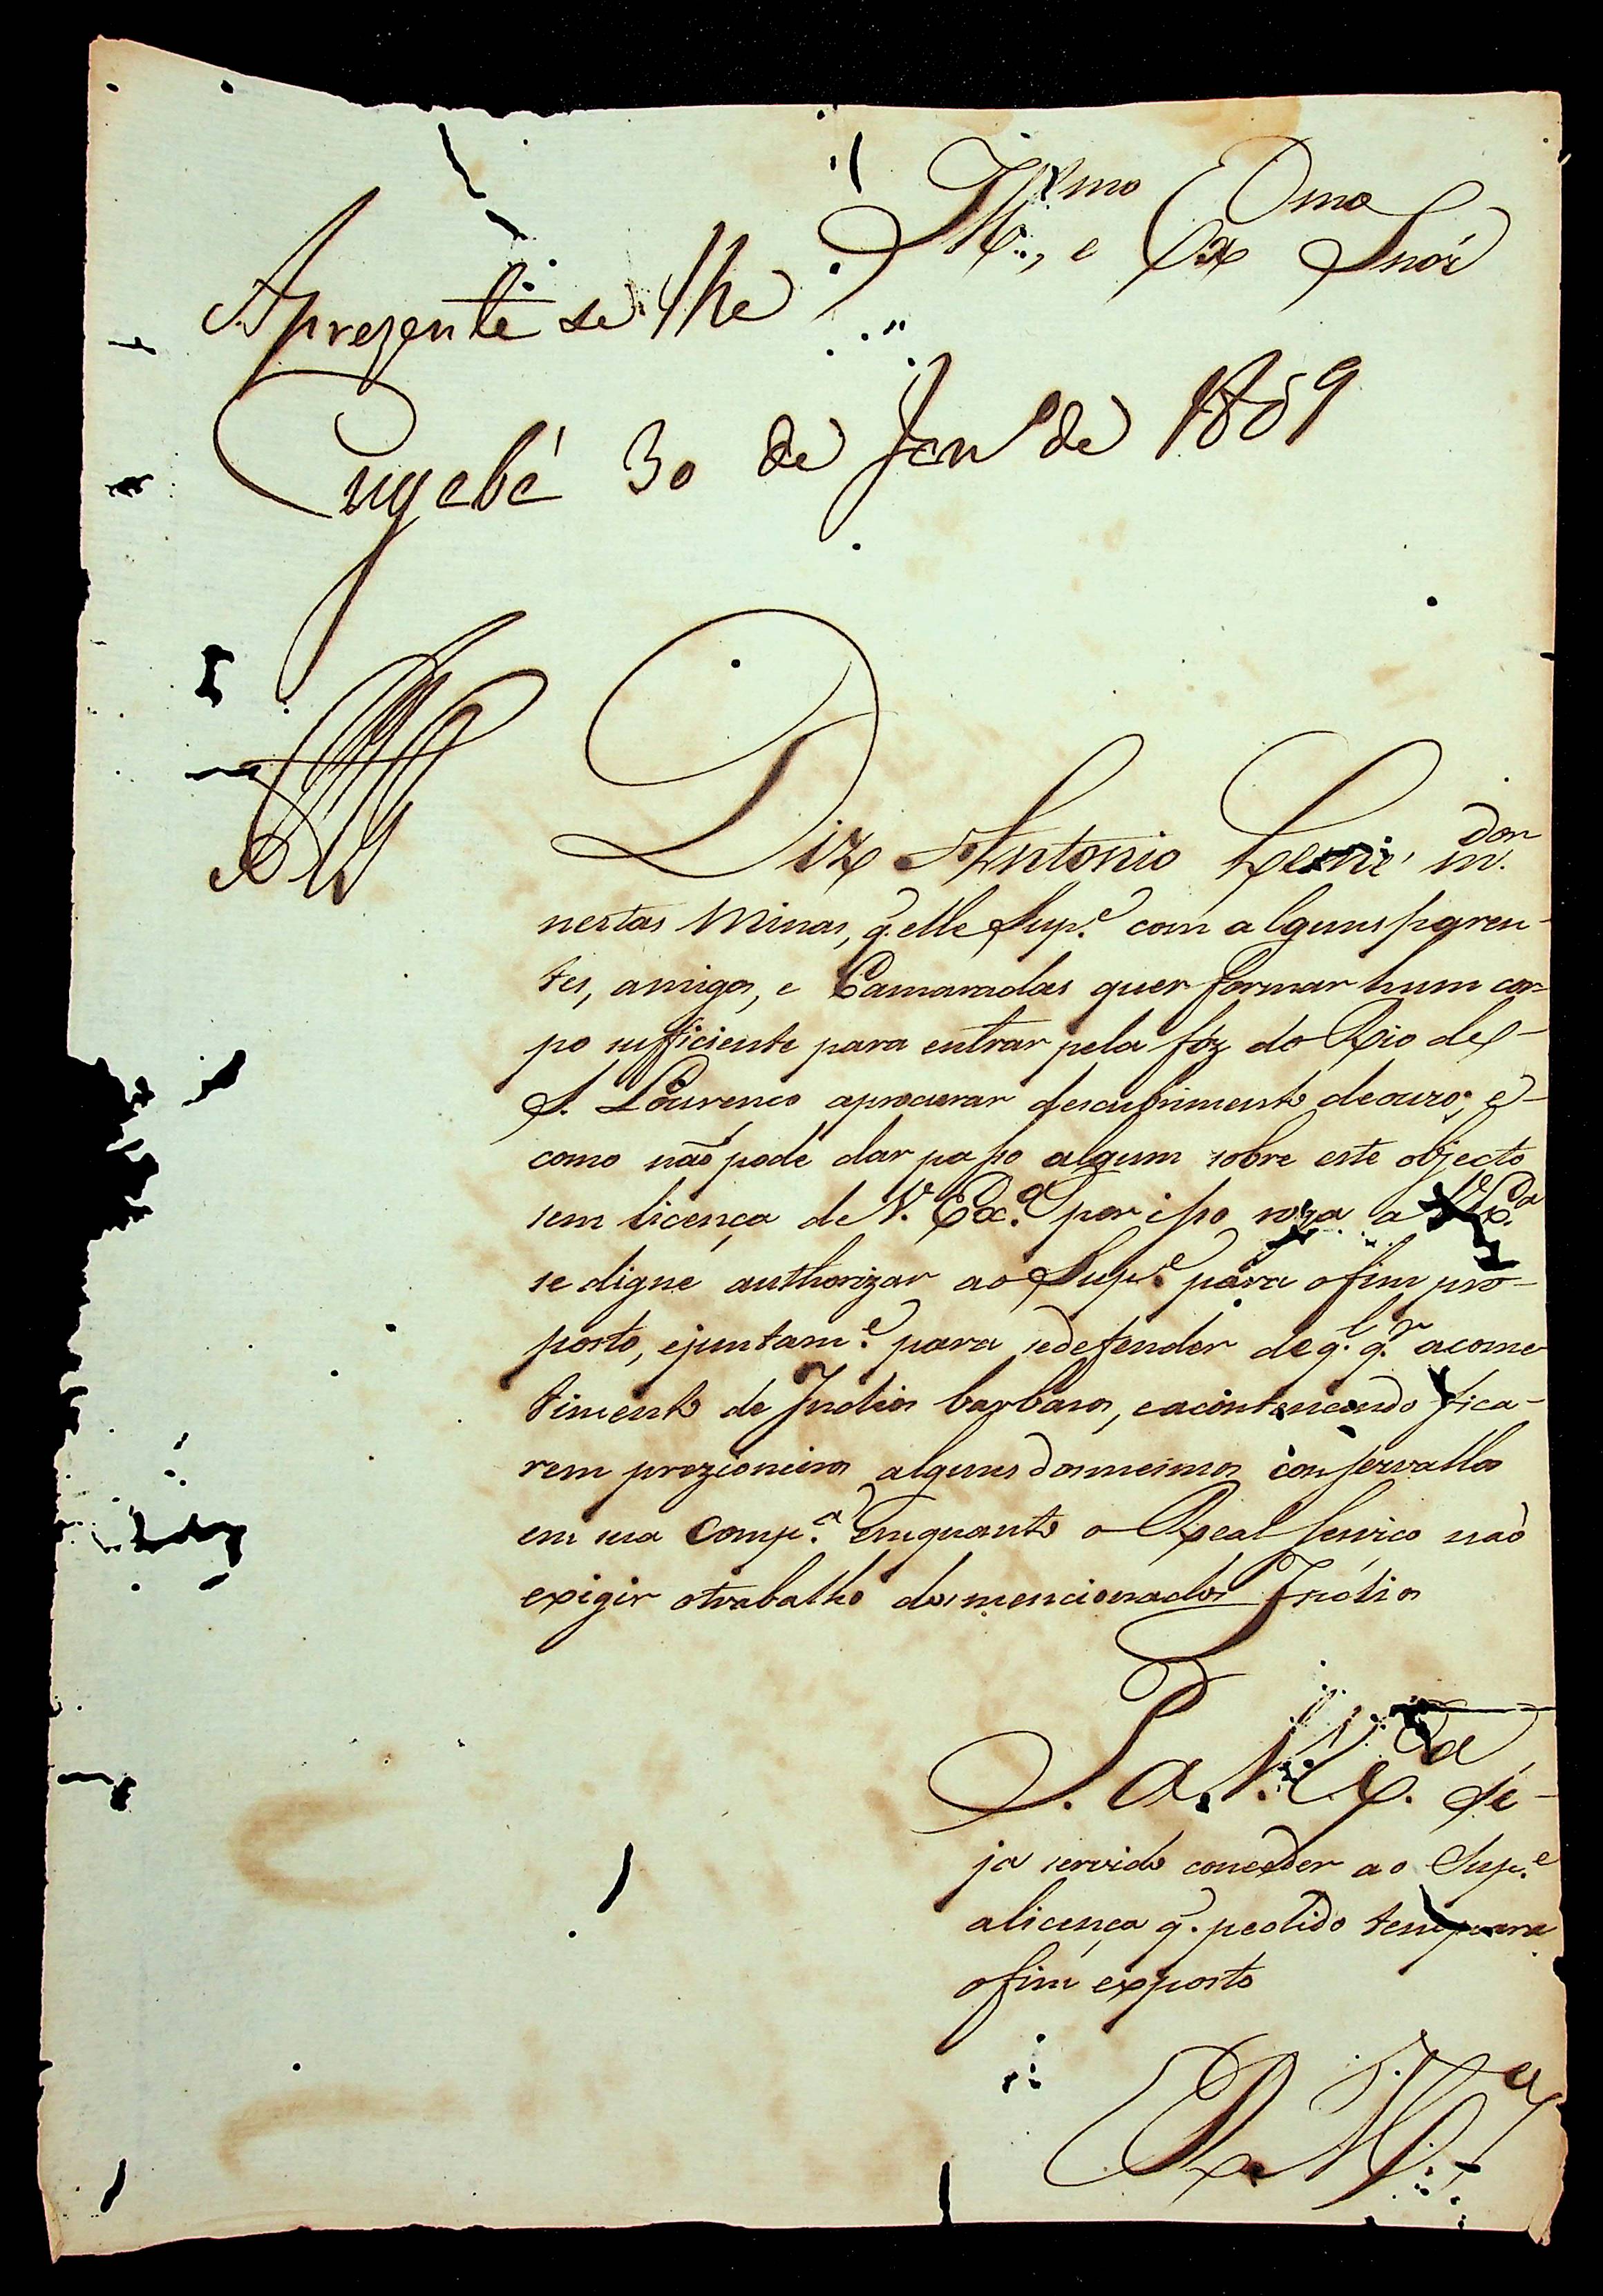 Ill.mo, e Ex.mo Snór
Aprezente se lhe
Cuyabá 30 de Jan.ro de 1809
Diz Antonio m.dor
nestas Minas, q̃ elle Sup.e com alguns paren-
tes, amigos, e Camaradas quer formar hum cor-
po sufficiente para entrar pela fóz do Rio de
S. Lourenço aprocurar descubrimento deouro; e
como não pode dar passo algum sobre este objecto
sem licença de V. Ex.a por isso roga a V. Ex.a
se digne authorizar ao Sup.e para ofim pro-
posto, ejuntam.e para sedefender de q.l q.r acome-
timento de Indios barbaros, eacontencendo fica-
rem prezioneiros alguns dosmesmos conservallos
em sua Comp.a emquanto o Real Serviço não
exigir otrabalho dosmencionados Indios
P. a V. Ex.a se-
ja servido conceder ao Sup.e
alicença q̃. pedido tem para
ofim exposto
E R M.ce